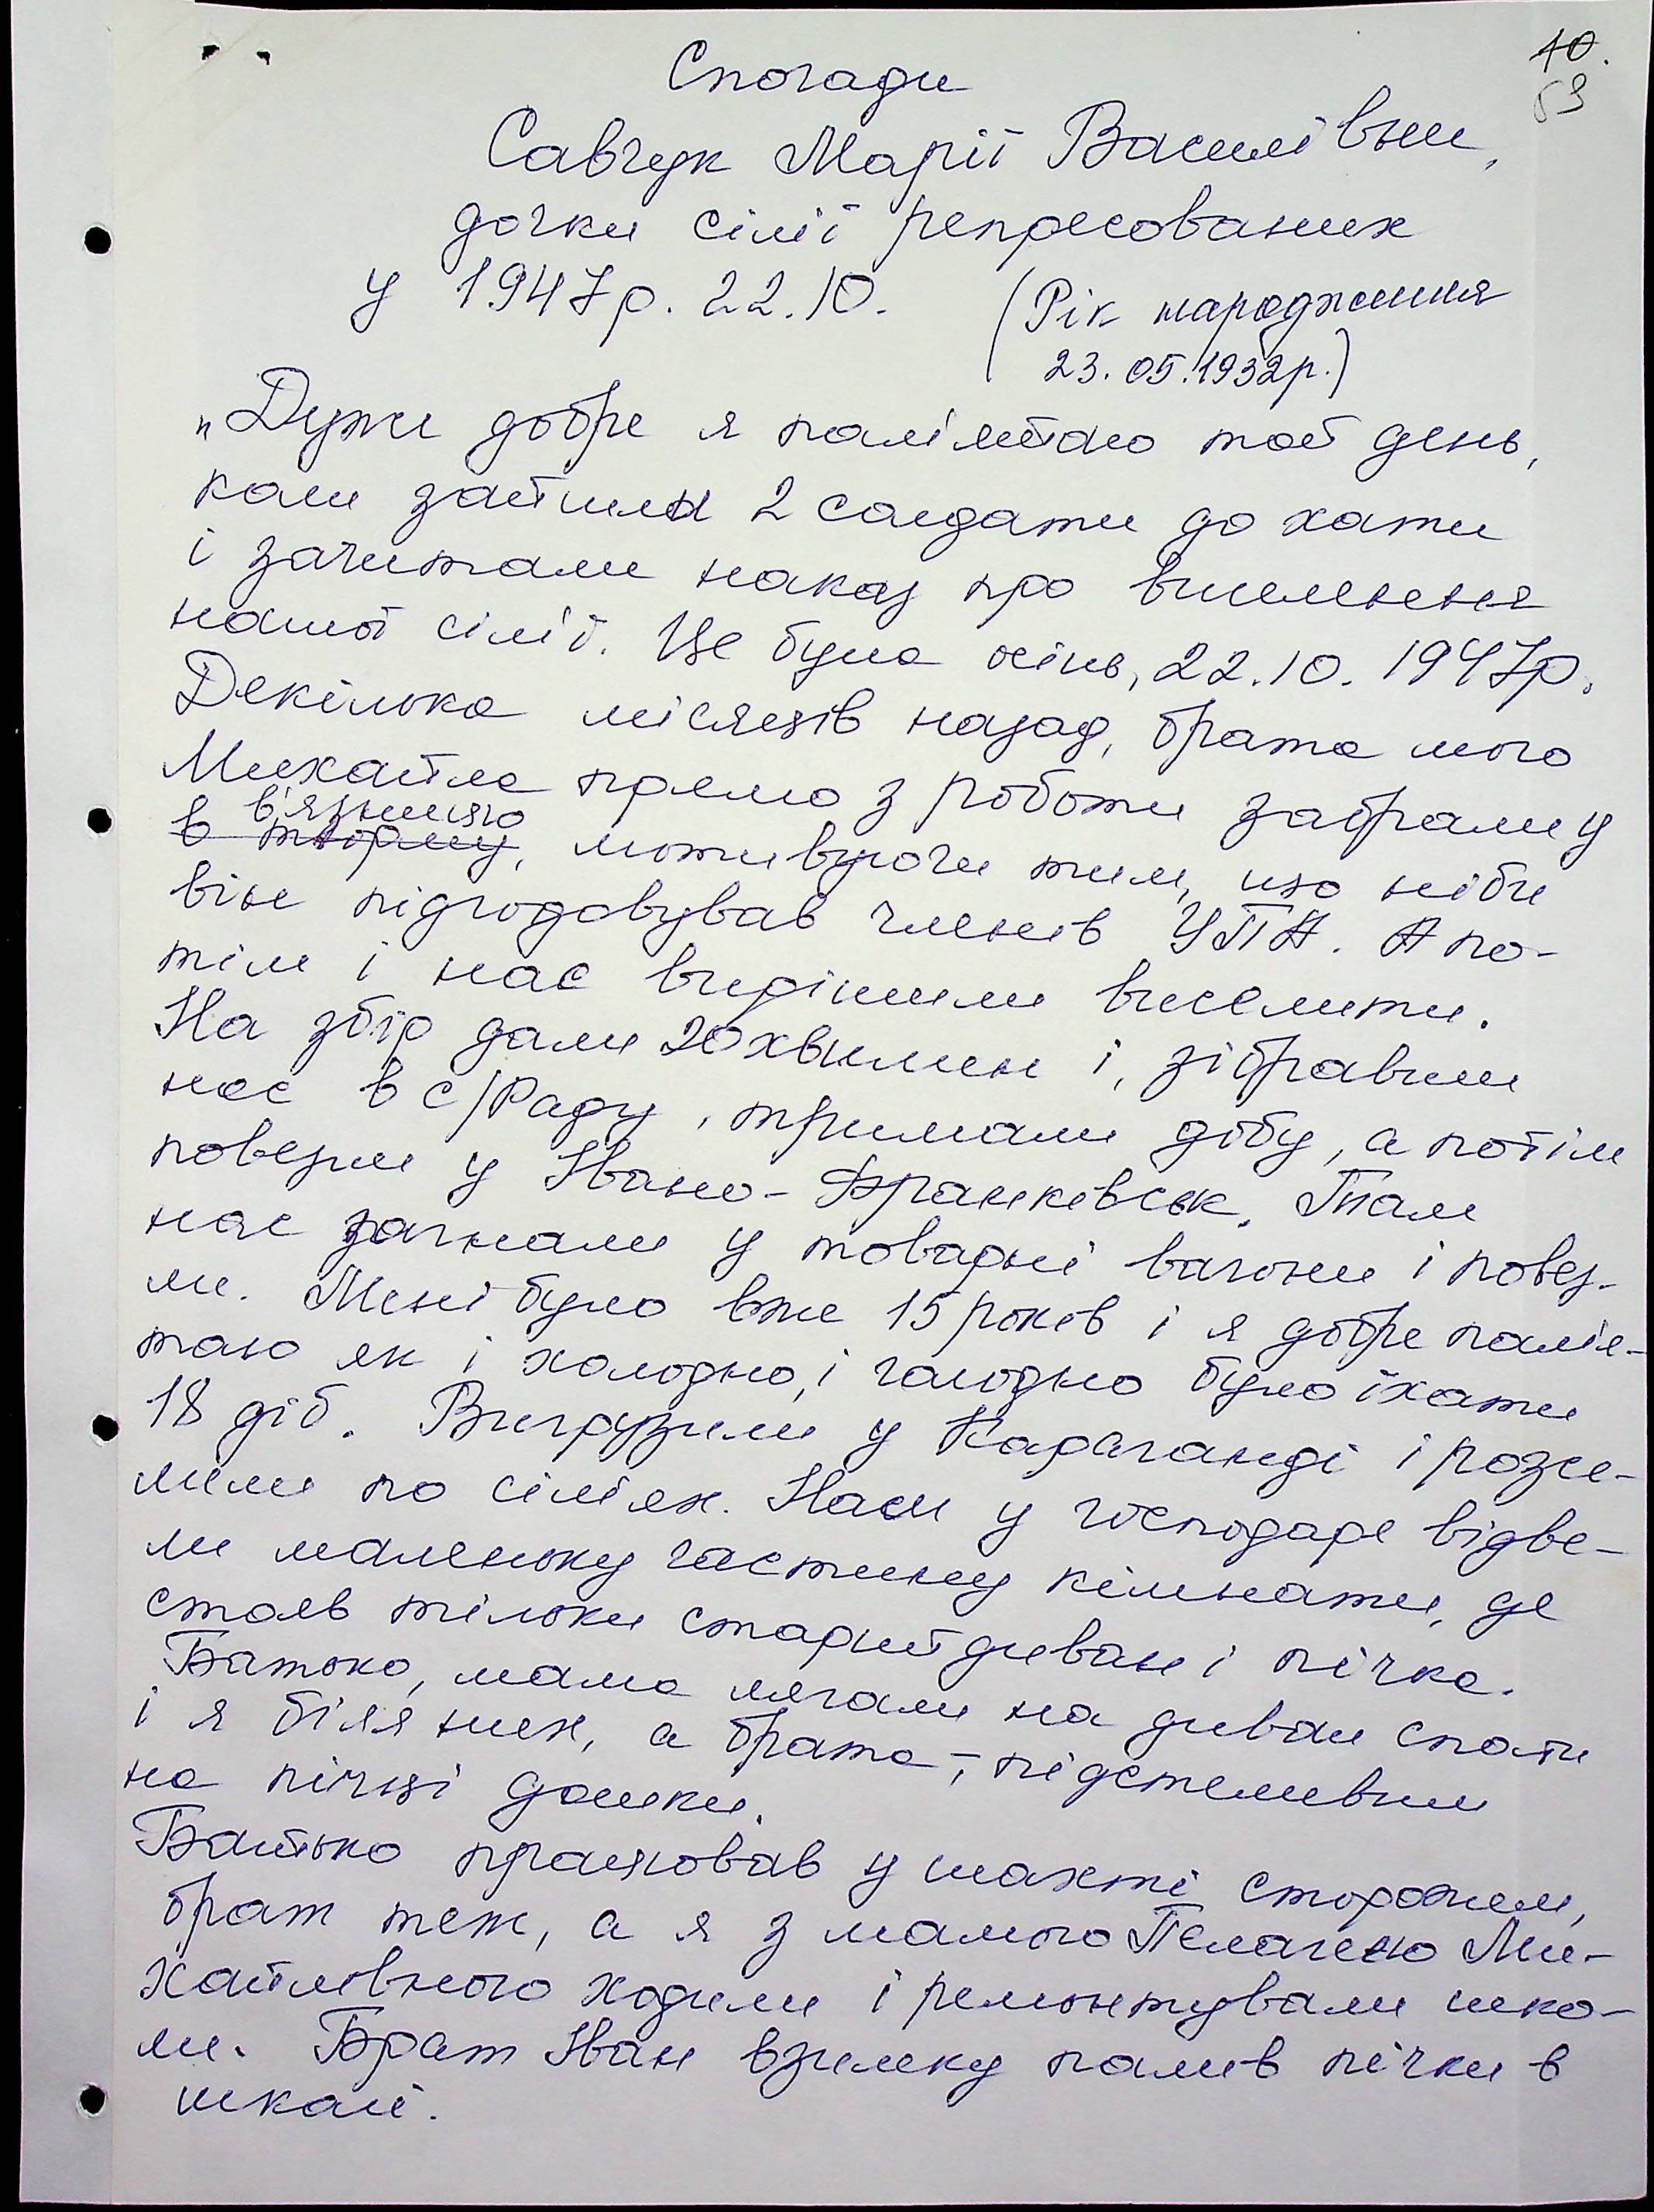 10.
59
Спогади
Савчук Марії Василівни,
дочки сімії репресованих
у 1947р. 22.10. (Рік народження
23.05.1932р.)
„Дуже добре я памʼятаю той день,
коли зайшли 2 солдати до хати
і зачитали наказ про виселення
нашої сімії. Це була осінь, 22.10.1947р.
Декілька місяців назад, брата мого
Михайла прямо з роботи забрали у
вʼязницю
в тюрму, мотивуючи тим, що ніби
він підгодовував членів УПА. А по-
тім і нас вирішили виселити.
На збір дали 20 хвилин і, зібравши
нас в с/Раду, тримали добу, а потім
повезли у Івано-Франківськ. Там
нас загнали у товарні вагони і повез-
ли. Мені було вже 15 років і я добре памʼя-
таю як і холодно, і голодно було їхати
18 діб. Вигрузили у Караганді і розсе-
лили по сімʼях. Нам у господаре відве-
ли маленьку частину кімнати, де
стояв тільки старий диван і пічка.
Батько, мама лягали на диван спати
і я біля них, а брата –, підстеливши
на пічці дошки.
Батько працював у шахті сторожем,
брат теж, а я з мамою Пелагією Ми-
хайлівною ходили і ремонтували шко-
ли. Брат Іван взимку палив пічки в
школі.